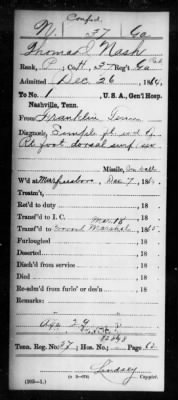 Confed.
N. 37 Ga
Thomas J Nash
Rank, P; Co. H, 37 Reg't Ga
Admitted Dec 26, 1864,
To No. 1, U. S. A., Gen'l Hosp.
Nashville, Tenn.
From Franklin Tenn
Diagnosis,
Rt foot dorsal surf
Missile,
W'd at Murfreesboro, Dec 7, 186
Treatm't,
Ret'd to duty , 18
Transf'd to I. C. , 18
Mar 18
Transf'd to Provost Marshal 1865
Furloughed , 18
Deserted , 18
Disch'd from service , 18
Died , 18
Re-adm'd from furlo' or des'n , 18
Remarks:
Age 29
Tenn. Reg. No. 37; Hos. No. ; Page 62
Lindsey
Copyist.